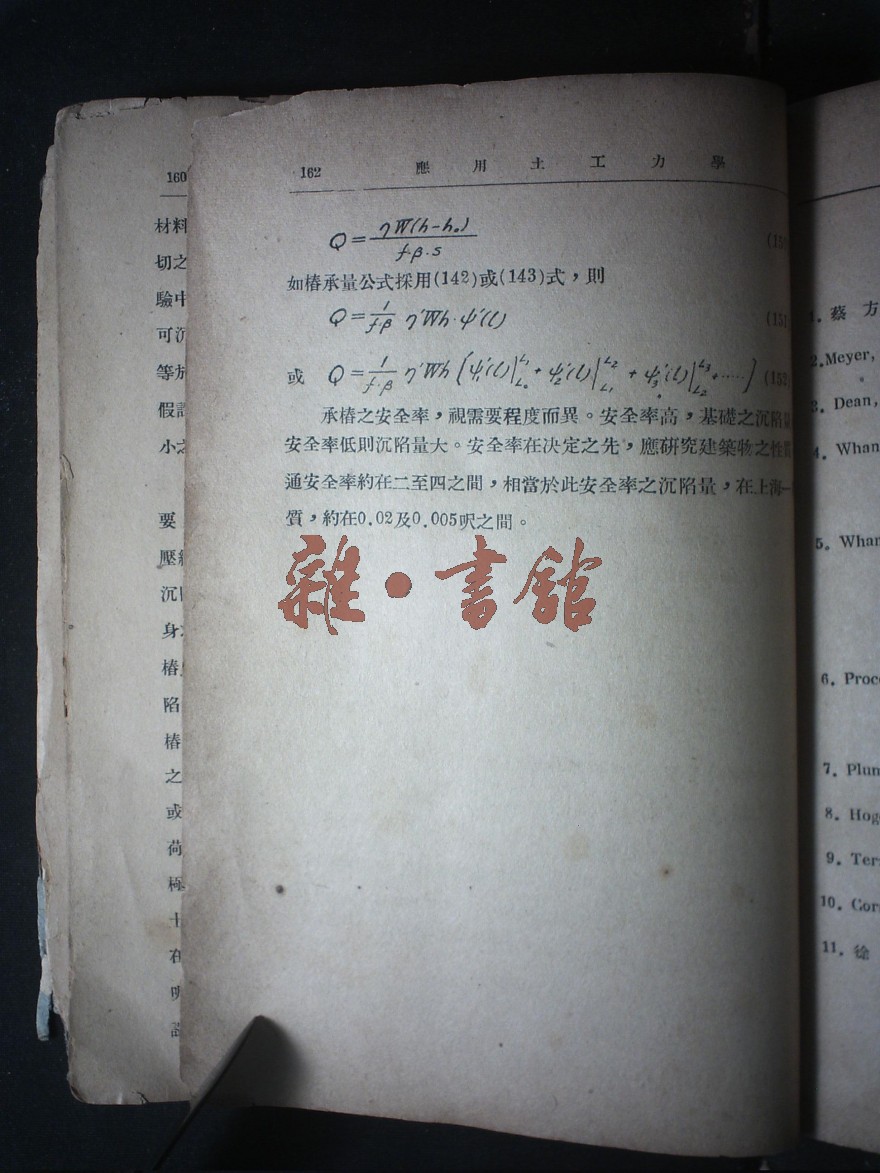 160
材料
切之
驗中
可沉
等於
假設
小之
要
沉
身
樁
陷
樁
之
或
荷
極
在
162 應用土工力學
Q = ηW(h-h₀) / f·β·s
如樁承量公式採用(142)或(143)式，則
Q = 1/f·β η'Wh·ψ'(l) (151
或 Q = 1/f·β η'Wh {ψ₁'(l)|L₀^L₁ + ψ₂'(l)|L₁^L₂ + ψ₃'(l)|L₂^L₃ + ·····} (152
承樁之安全率，視需要程度而異。安全率高，基礎之沉陷量
安全率低則沉陷量大。安全率在決定之先，應研究建築物之性質
通安全率約在二至四之間，相當於此安全率之沉陷量，在上海一
質，約在0.02及0.005呎之間。
雜·書館
1. 蔡方
2. Meyer,
3. Dean,
4. Whan
5. Whan
6. Proce
7. Plum
8. Hog
9. Ter
10. Cor
11. 徐